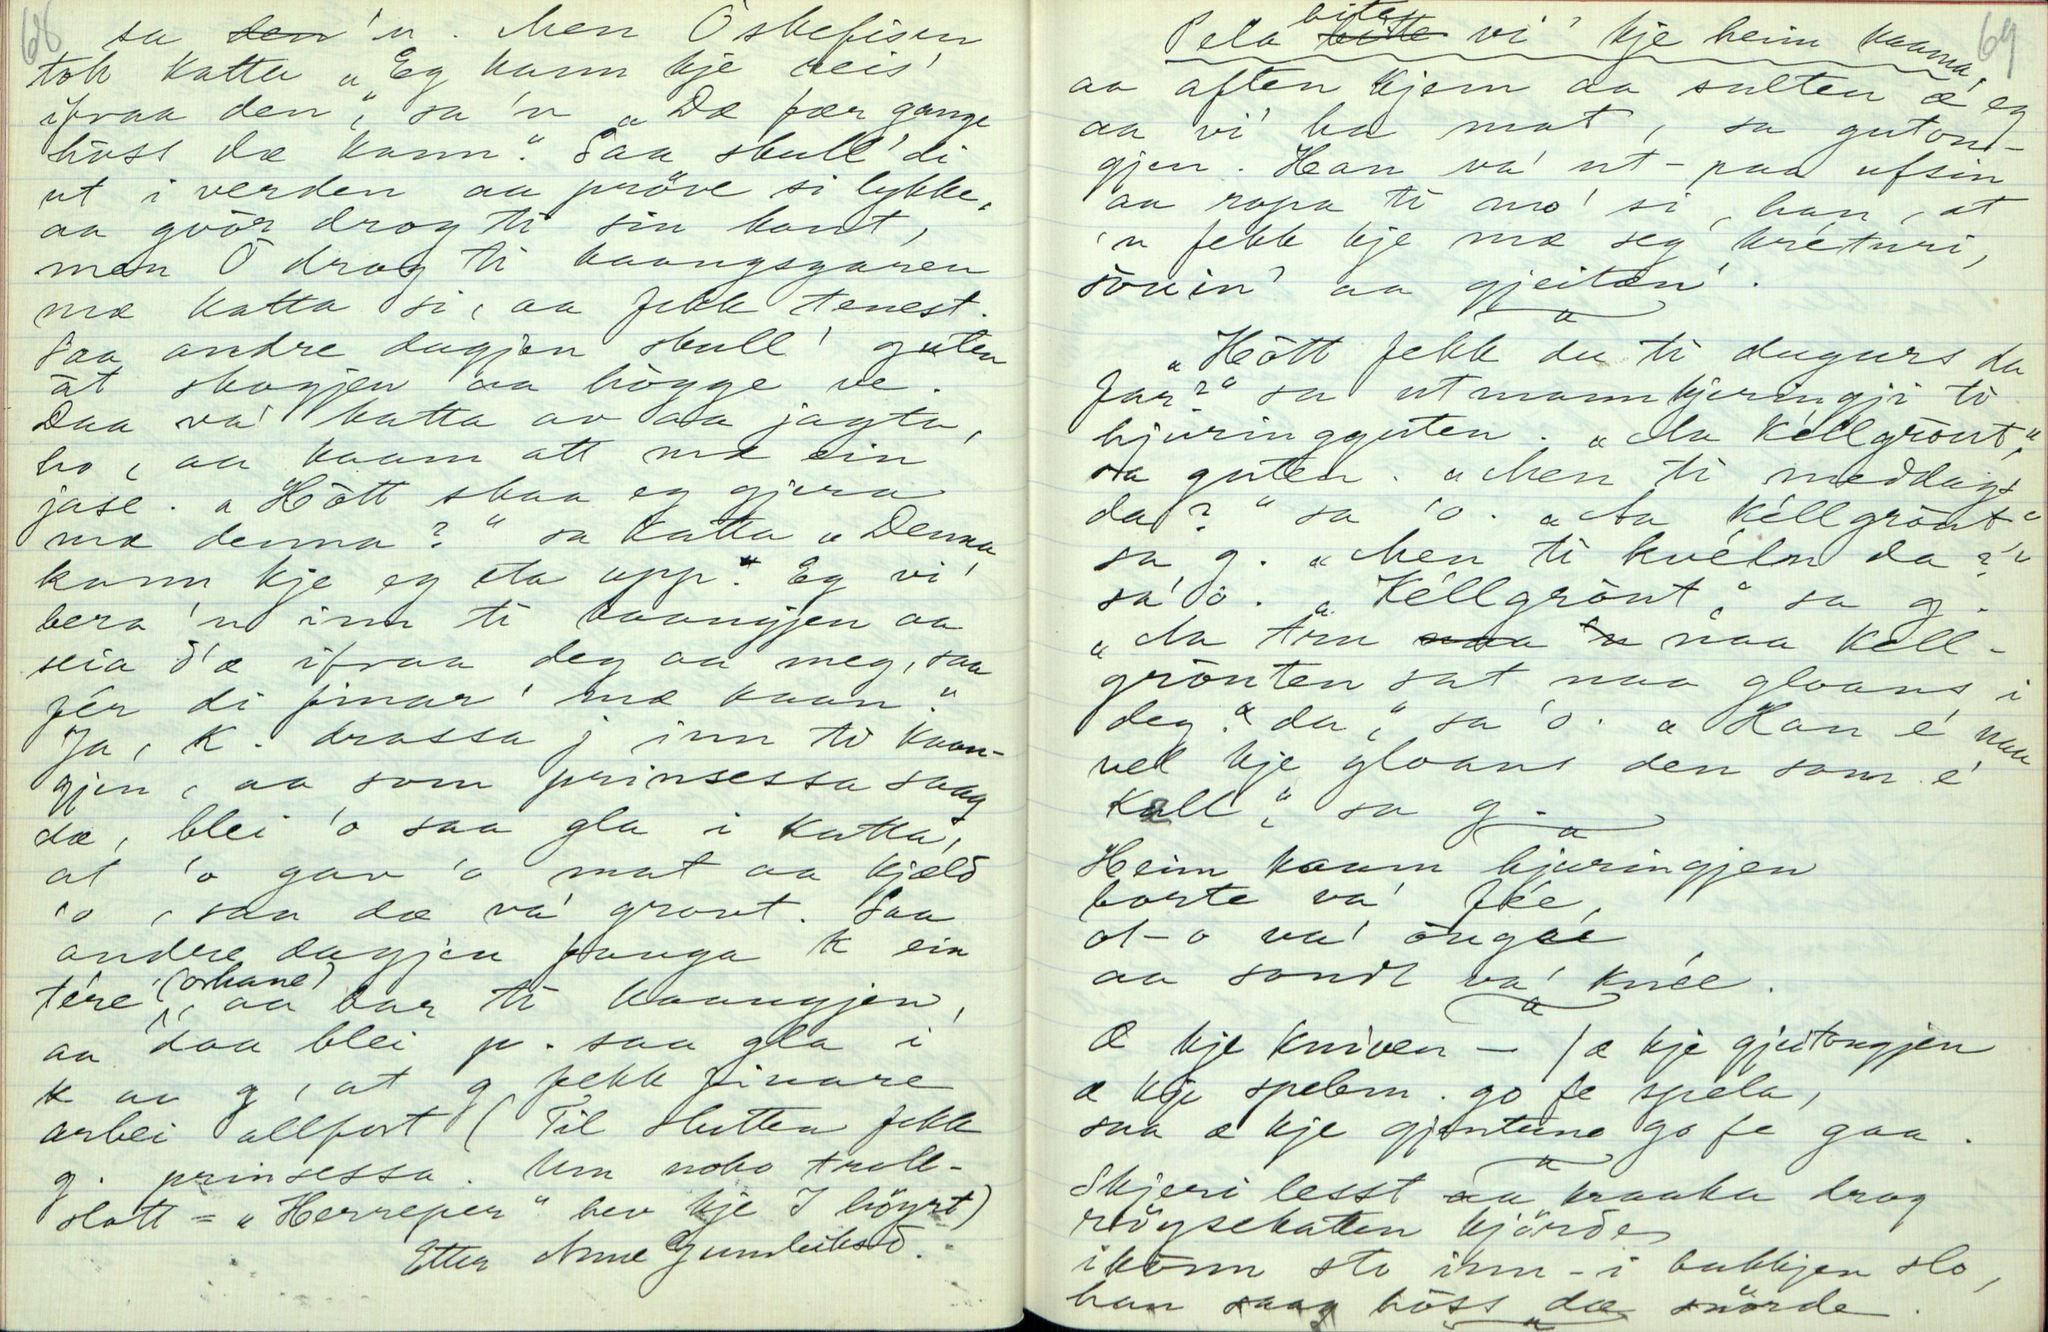 68
sa den 'n. Men Öskefisen
tok katta „Eg kann kje reis'
ifraa den“, sa 'n „Dæ fær gange
höss dæ kann“. Saa skull' di
ut i verden aa pröve si lykke,
aa gvör drog ti sin kant,
men Ö drog ti kaangsgaren
mæ katta si, aa fekk tenest.
Saa andre dagjen skull' guten
åt skogjen aa högge ve.
Daa va' katta av aa jagta,
ho, aa kaam att mæ ein
jase. „Hött skaa eg gjera
mæ denna?“ sa katta „Denna
kann kje eg eta upp“. Eg vi'
bera 'n inn ti kaangjen aa
seia d'æ ifraa deg aa meg, saa
fér di finar' mæ kaan.“
Ja, K. drassa j inn ti kaan-
gjen, aa som prinsessa saag
dæ, blei 'o saa gla i katta,
at 'o gav 'o mat aa kjæld
'o, saa dæ va' grovt. Saa
andre dagjen fanga K ein
tére' (orhane), aa bar ti kaangjen,
aa daa blei p. saa gla i
K aa g, at g fekk finare
arbei allfort (Til slutten fekk
g. prinsessa. Um noko troll-
slott = „Herreper“ hev kje I höyrt)
Etter Anne Gunleiksd.
69
Pela bite bites vi' kje heim kaama'
aa aften kjem aa sulten æ eg
aa vi' ha mat, sa guton-
gjen. Han va' ut-paa ufsin
aa ropa ti mo' si, han, at
'n fekk kje mæ seg kréturi,
söuin' aa gjeitan'.
„Hött fekk du ti dugurs da
far?“ sa utmannkjeringji ti
hjuringguten. „Aa kéllgröut,“
sa guten. „Men ti meddags
da?“ sa 'o. „Aa kéllgröut“
sa g. „Men ti kvéln da?“
sa 'o. „Kéllgröut“, sa g.
„Aa tru naa kéll-
gröuten sat naa gloans i
deg da“, sa 'o. „Han é' naa
vel kje gloans den som é'
kall“, sa g.
Heim kaam hjuringjen
borte va' fée,
ol-o va' öugée
aa sondt va' knée.
Æ kje kniven — / æ kje gjutongjen
æ kje spelem. go fe spela,
saa æ kje gjentune go fe gaa.
Skjeri lesst aa kraaka drog
röysekatten kjörde
ikönn sto inn-i bakkjen slo,
han saag höss dæ snörde.